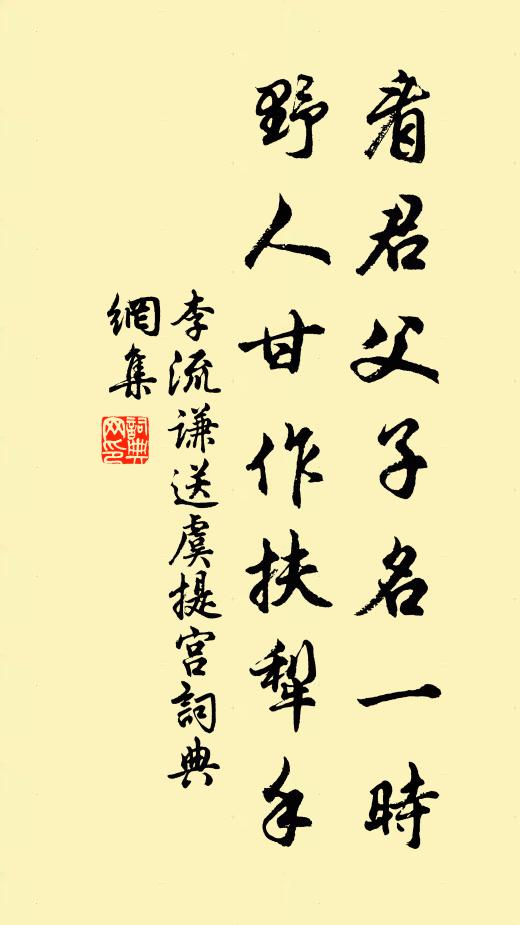 看君父子名一時
野人甘作扶犁手
李流謙送虞提宮詞典
網集
詞典網印